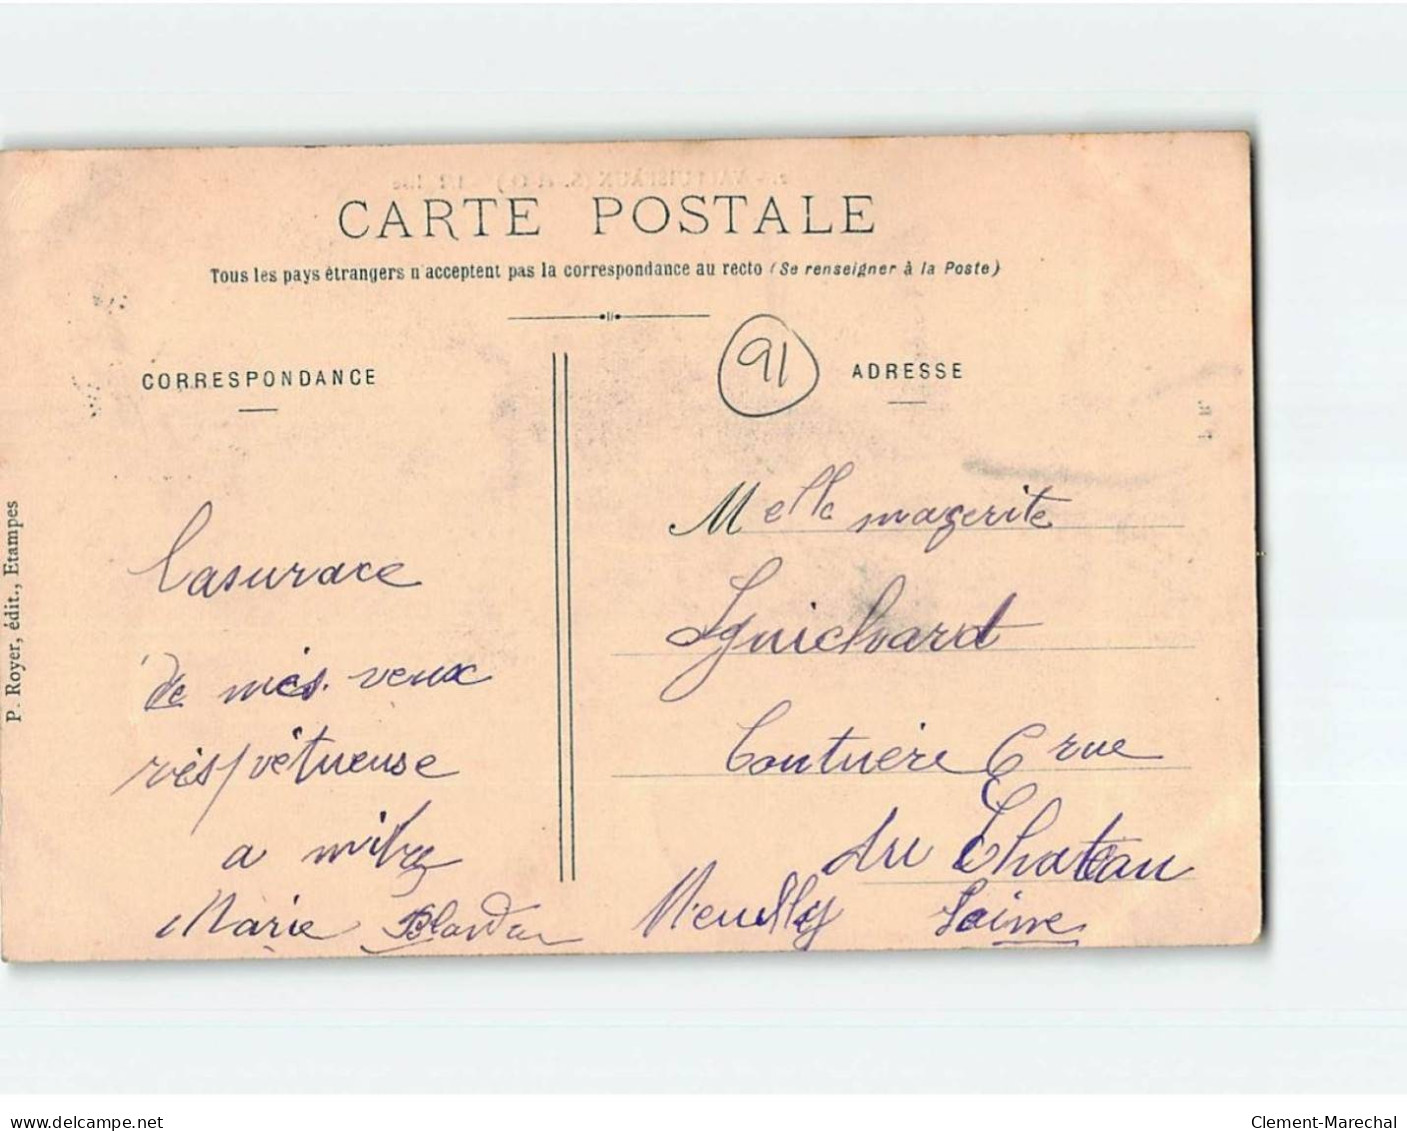 CARTE POSTALE
Tous les pays étrangers n'acceptent pas la correspondance au recto (Se renseigner à la Poste)
CORRESPONDANCE
91
ADRESSE
P. Royer, édit., Etampes
lasurace
de mes veux
respétueuse
a
Marie
Melle magerite
Guichard
Coutuère 6 rue
du Chateau
Neuilly Seine
delcampe.net
Clement-Marechal